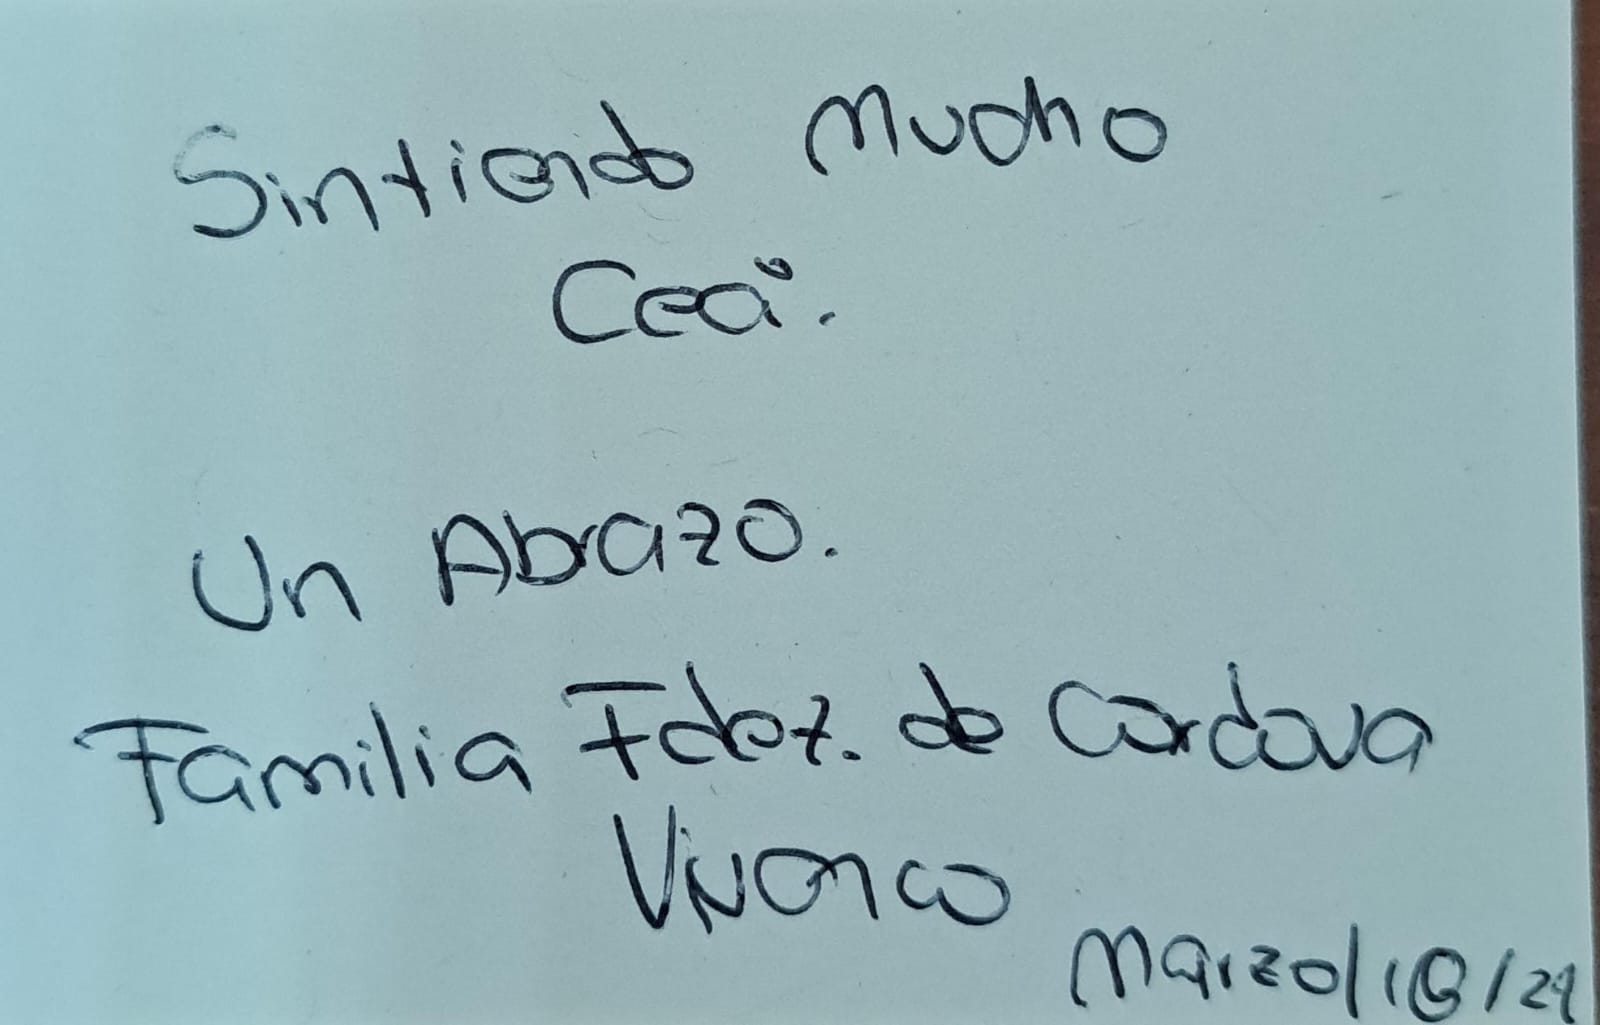 Sintiendo Mucho
Ceci.
Un Abrazo.
Familia Fdez. de Cordova
Vivanco
Marzo/18/24